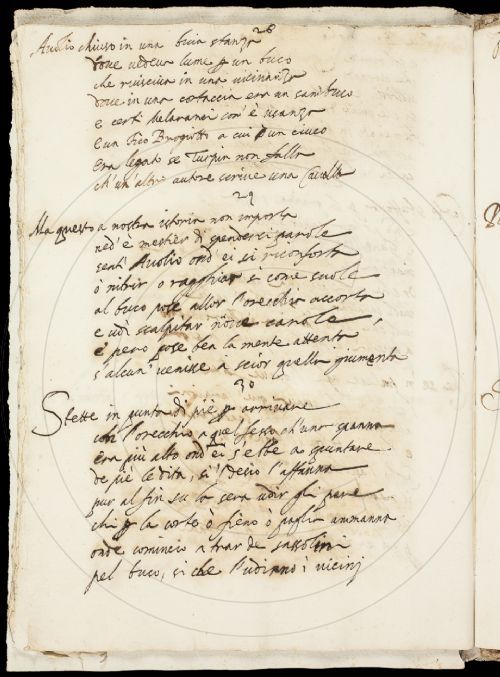 28
Auolio chiuso in una buia stanza
doue uedeua lume p un buco
che riusciua in una uicinanza
doue in una cortaccia era un sambuco
e certi Melarana com' è usanza
e un Fico Brugiotto a cui un ciuco
era legato se Turpin non falla
ch'un'altro autore scriue una Caualla
29
Ma questo a nostra istoria non importa
ned'è mestier di spenderci parole
sentì Auolio ond' ei si riconforta
ò nitrir o ragghiar si come suole
al buco pose allor l'orecchia accorta
e udì scalpitar noue carole
e però pose ben la mente attenta
s'alcun' uenisse à scior quella giumenta
30
Stette in punta di pie p arriuare
con l'orecchio a quel fesso ch'una spanna
era più alto ond' ei s'ebbe a spuntare
de piè le dita, si 'l desio l'affanna
pur al fin su la sera udir gli pare
chi p la corte ò fieno ò paglia ammanna
onde cominciò a trar de sassolini
pel buco, si che l'udirno i uicini